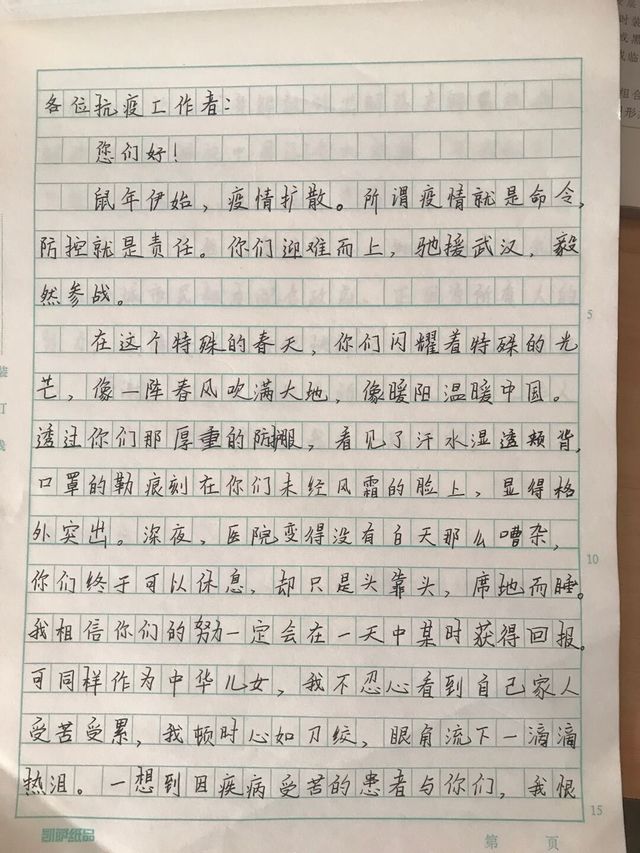 各位抗疫工作者：
您们好！
鼠年伊始，疫情扩散。所谓疫情就是命令，
防控就是责任。你们迎难而上，驰援武汉，毅
然参战。
5
在这个特殊的春天，你们闪耀着特殊的光
芒，像一阵春风吹满大地，像暖阳温暖中国。
透过你们那厚重的防护服，看见了汗水湿透颊背，
口罩的勒痕刻在你们未经风霜的脸上，显得格
外突出。深夜，医院变得没有白天那么嘈杂，
10
你们终于可以休息，却只是头靠头，席地而睡。
我相信你们的努一定会在一天中某时获得回报。
可同样作为中华儿女，我不忍心看到自己家人
受苦受累，我顿时心如刀绞，眼角流下一滴滴
热泪。一想到因疾病受苦的患者与你们，我恨
15
凯萨纸品
第 页
装
订
线
组合